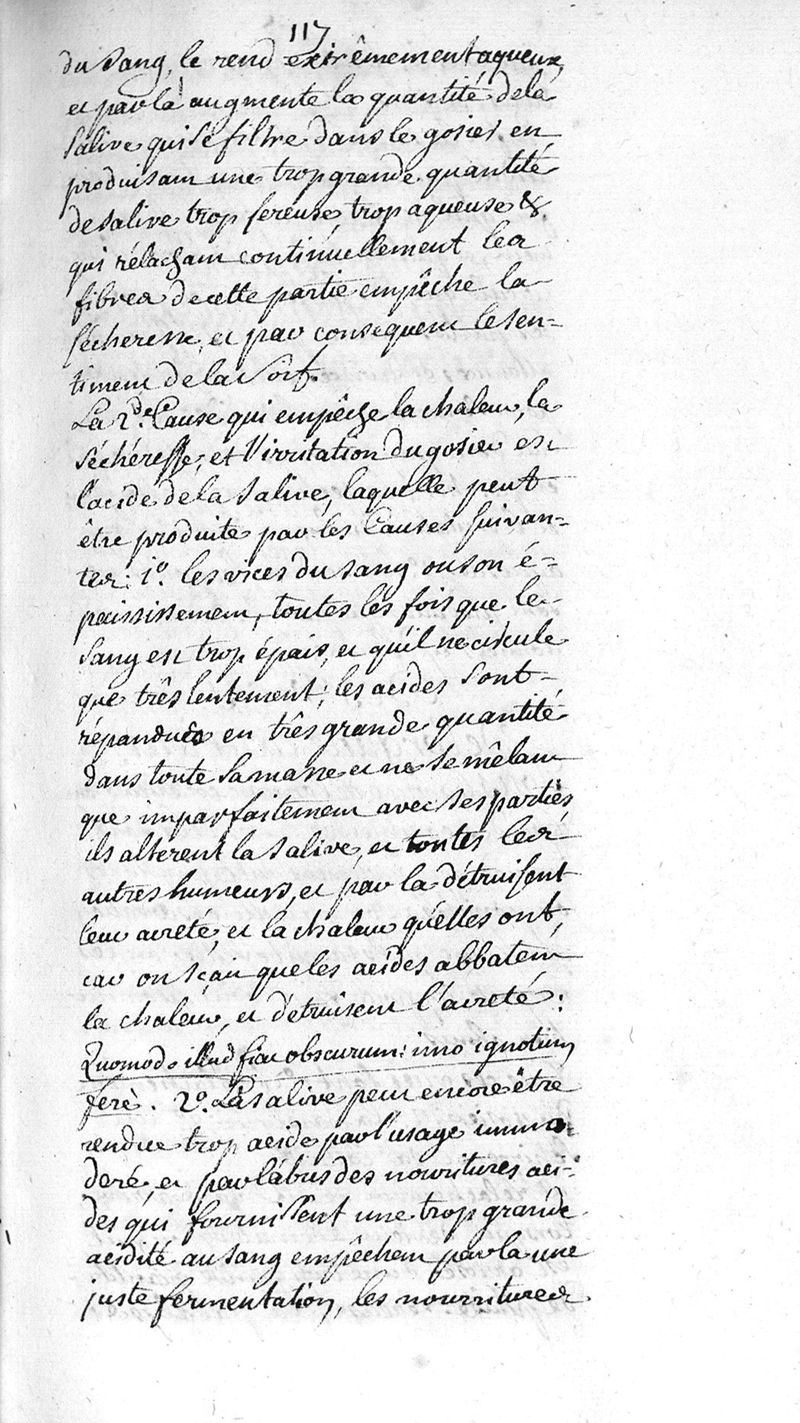 117
du sang, le rend extrêmement aqueux,
et par là augmente la quantité de la
salive qui se filtre dans le gosier, en
produisant une trop grande quantité
de salive trop sereuse, trop aqueuse &
qui rélachant continuellement les
fibres de cette partie empêche la
sécheresse, et par consequent le sen=
timent de la soif.
La 2.de Cause qui empêche la chaleur, la
séchéresse, et l'irritation du gosier est
l'acide de la salive, laquelle peut
être produite par les Causes suivan=
tes: 1.o les vices du sang ou son é=
paississement, toutes les fois que le
sang est trop épais, et qu'il ne circule
que três lentement; les acides sont
répandués en três grande quantité
dans toute sa masse et ne se mêlant
que imparfaitement avec ses parties
ils alterent la salive, et toutes les
autres humeurs, et par la détruisent
leur acreté, et la chaleur qu'elles ont,
car on sçait que les acides abbatent
la chaleur, et détruisent l'acreté:
Quomodo illud fiat obscurum: imo ignotum
ferè. 2.o La salive peut encore être
rendue trop acide par l'usage immo=
deré, et par l'abus des nourritures aci=
des qui fournissent une trop grande
acidité au sang empêchent par la une
juste fermentation, les nourritures